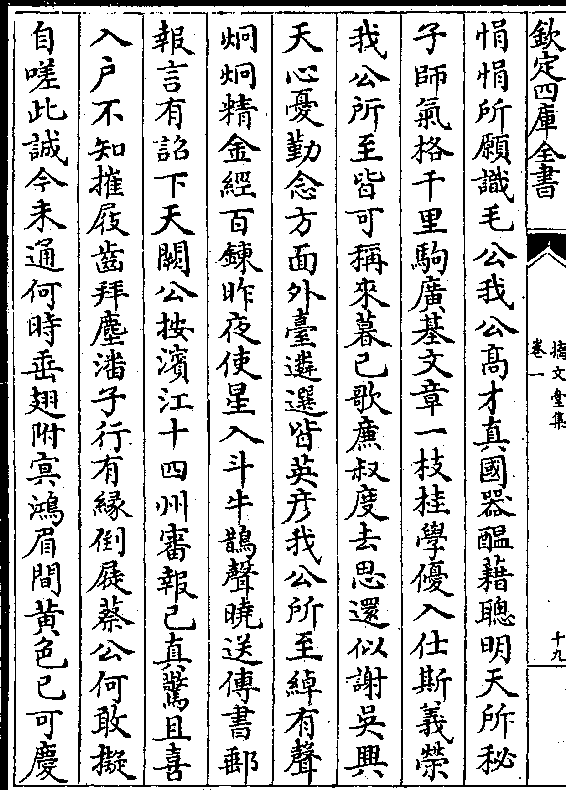 欽定四庫全書
摛文堂集
卷一
十九
悁悁所願識毛公我公高才真國器醖藉聰明天所秘
子師氣格千里駒廣基文章一枝桂學優入仕斯義榮
我公所至皆可稱來暮已歌廉叔度去思還似謝吳興
天心憂勤念方面外臺遴選皆英彦我公所至綽有聲
炯炯精金經百鍊昨夜使星入斗牛鵲聲曉送傳書郵
報言有詔下天闕公按濱江十四州審報已真驚且喜
入户不知摧屐齒拜塵潘子行有緣倒屣蔡公何敢擬
自嗟此誠今未通何時垂翅附㝠鴻眉間黄色已可慶